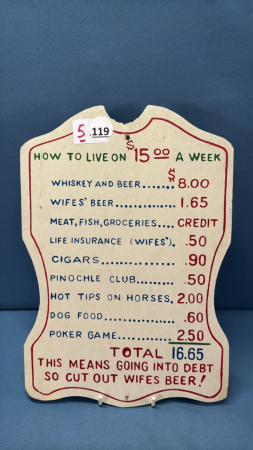 5 .119
HOW TO LIVE ON $15 00 A WEEK
WHISKEY AND BEER....... $8.00
WIFES' BEER............. 1.65
MEAT, FISH, GROCERIES.... CREDIT
LIFE INSURANCE (WIFES'). .50
CIGARS................ .90
PINOCHLE CLUB........ .50
HOT TIPS ON HORSES. 2.00
DOG FOOD............. .60
POKER GAME.......... 2.50
TOTAL 16.65
THIS MEANS GOING INTO DEBT
SO CUT OUT WIFES BEER!